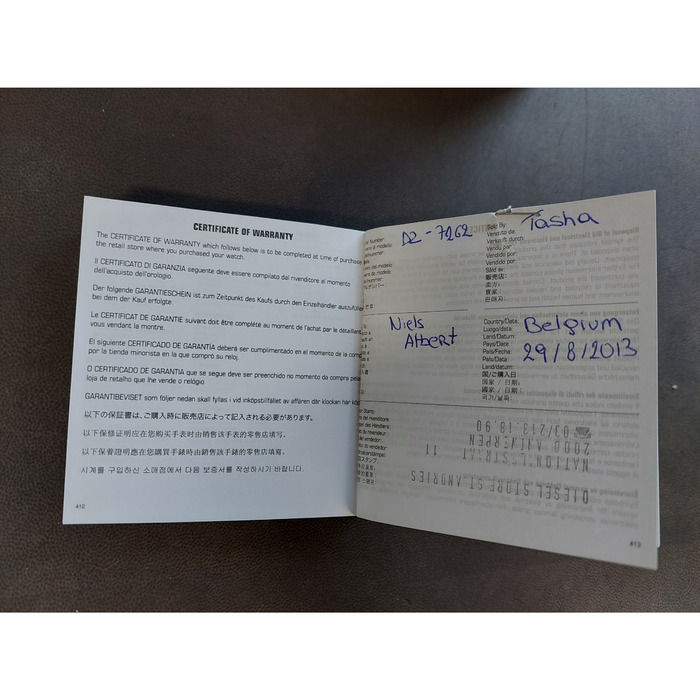 CERTIFICATE OF WARRANTY
The CERTIFICATE OF WARRANTY which follows below is to be completed at time of purchase
the retail store where you purchased your watch.
Il CERTIFICATO DI GARANZIA seguente deve essere compilato dal rivenditore al momento
dell'acquisto dell'orologio.
Der folgende GARANTIESCHEIN ist zum Zeitpunkt des Kaufs durch den Einzelhändler auszufüllen
bei dem der Kauf erfolgte.
Le CERTIFICAT DE GARANTIE suivant doit être complété au moment de l'achat par le détaillant
vous vendant la montre.
El siguiente CERTIFICADO DE GARANTÍA deberá ser cumplimentado en el momento de la
por la tienda minorista en la que compró su reloj.
O CERTIFICADO DE GARANTIA que se segue deve ser preenchido no momento da compra
loja de retalho que lhe vende o relógio.
GARANTIBEVISET som följer nedan skall fyllas i vid inköpstillfället av affären där klockan har
以下の保証書は、ご購入時に販売店によって記入される必要があります。
以下保修证明应在您购买手表时由销售该手表的零售店填写。
以下保養證明應在您購買手錶時由銷售該手錶的零售店填寫。
시계를 구입하신 소매점에서 다음 보증서를 작성하시기 바랍니다.
412
Number:
DZ-7262
Sold By:
Vendito da:
Verkauft durch:
Vendu par:
Vendido por:
Vendido por:
Såld av:
販売店:
卖方:
賣家:
판매자:
Tasha
Niels
Albert
Country/Date:
Luogo/data:
Land/Datum:
Pays/Date:
País/Fecha:
País/Data:
Land/datum:
国/ご購入日
国家 / 日期:
國家 / 日期:
국가/날짜:
Belgium
29/8/2013
DIESEL STORE ST.ANDRIES
NATIONALESTRAAT 11
2000 ANTWERPEN
03/213.18.90
413